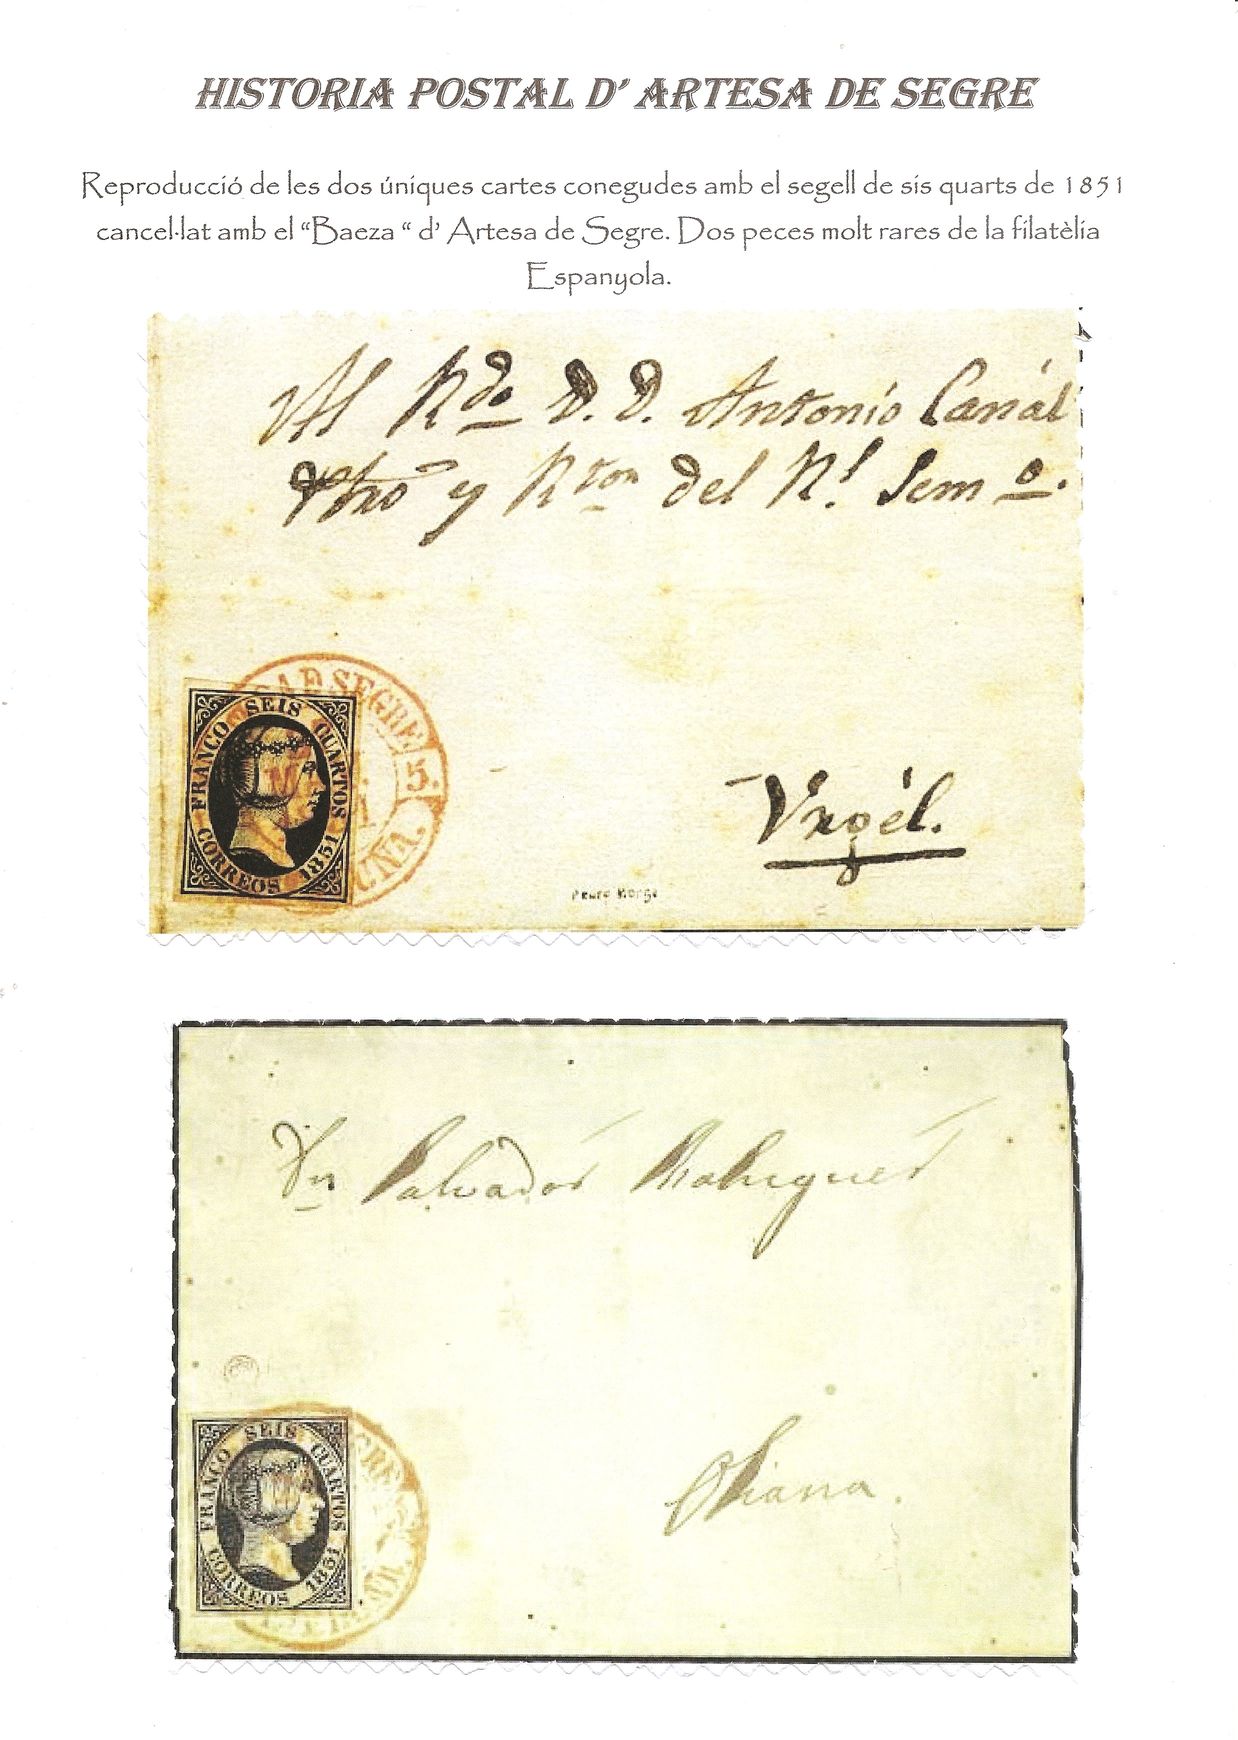 HISTORIA POSTAL D' ARTESA DE SEGRE
Reproducció de les dos úniques cartes conegudes amb el segell de sis quarts de 1851
cancel·lat amb el “Baeza “ d' Artesa de Segre. Dos peces molt rares de la filatèlia
Espanyola.
Al Rdo D. D. Antonio Carrál
Pbro y Rton del Rl. Semo.
SEGRE
5.
UÑA.
FRANCO SEIS CUARTOS
CORREOS 1851
Urgél.
Dn Salvador
Oliana.
GRE
FRANCO SEIS CUARTOS
CORREOS 1851